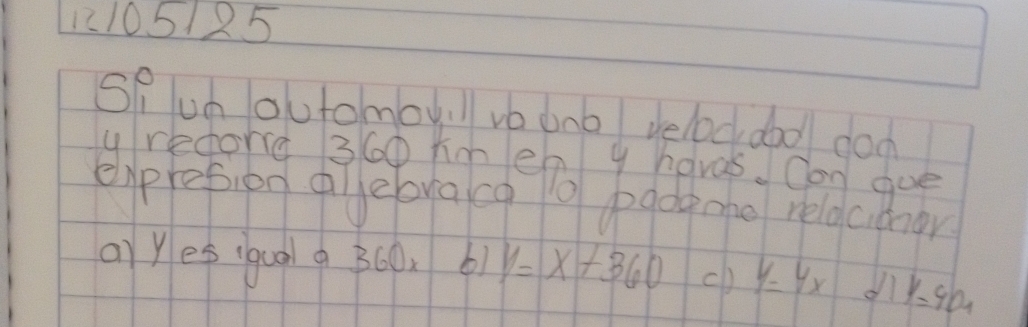 12/05/25
Si un automovil va una velocidad dad
y recorre 360 km en 4 horas. Con que
expresion aljebraca lo podemo relacionar
a) y es igual a 360x b) y = x + 360 c) y = 4x d) y = 90x